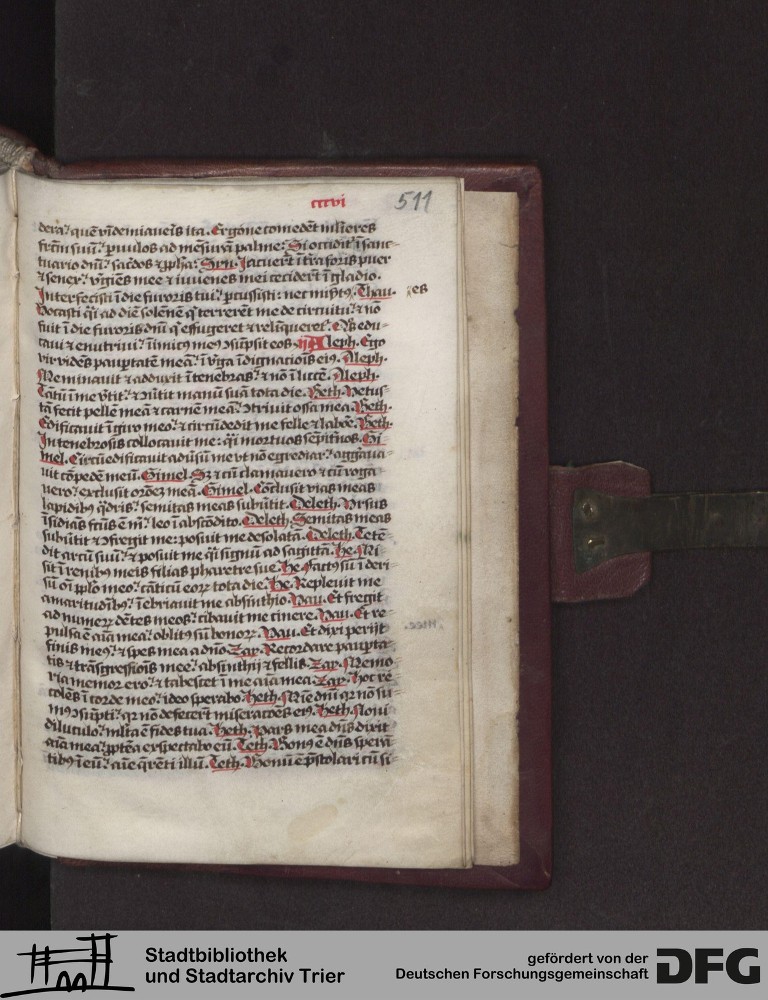 cccvi 511
dera? quē vīdemiaueīs ita. Ergone comedēt mlīeres
frctm suū? puulos ad mēsurā palme: Si occidit ī sanc-
tuario dnī? sacdos ꝛ ppha: Syn. Jacuerūt ī tra foris puer
ꝛ senex? vgīes mee ꝛ iuuenes mei cecidert ī gladio.
Interfecisti ī die furoris tui? pcussisti: nec misttꝰ. Thau. es
Vocasti qͥi ad diē solēnē q terrerēt me de circuitu? ꝛ nō
fuit ī die furoris dnī q effugeret ꝛ relīqueret. Qͦs edu-
caui ꝛ enutriui? īimicꝰ meꝰ ꝯsūpsit eos. iij Aleph. Ego
vir vidēs pauptatē meā? ī v̄ga īdignatiois eiꝰ. Aleph.
Me minauit ꝛ adduxit ī tenebras? ꝛ nō ī lucē. Aleph.
Tātū ī me v̄tit? ꝛ ꝯūtit manū suā tota die. Beth. Vetus-
tā fecit pellē meā ꝛ carnē meā? ꝯtriuit ossa mea. Beth.
Edificauit ī giro meo? ꝛ circūdedit me felle ꝛ labōe. Beth.
In tenebrosis collocauit me: qͥi mortuos sepitnos. Gi
mel. Circū edificauit adūsū me vt nō egrediar? aggraua-
uit cōpedē meū. Gimel. Sꝫ ꝛ cū clamauero ꝛ cū roga
uero? exclusit orōeꝫ meā. Gimel. Cōclusit vias meas
lapidibꝰ qdris? semitas meas subūtit. Deleth. Vrsus
īsidias fctus ē m? leo ī abscōdito. Deleth. Semitas meas
subūtit ꝛ ꝯfregit me: posuit me desolatā. Deleth. Tetē-
dit arcū suū? ꝛ posuit me qͥi signū ad sagittā. He. Mi-
sit ī renibꝰ meis filias pharetre sue. He. Factꝰ sū ī deri-
sū oī pplo meo? cāticū eoꝝ tota die. He. Repleuit me
amaritudībꝰ? īebriauit me absinthio. Vau. Et fregit
ad numeꝝ dētes meos? cibauit me cinere. Vau. Et re-
pulsa ē aīa mea? oblitꝰ sū bonoꝝ. Vau. Et dixi perijt
finis meꝰ? ꝛ spes mea a dnō. Zay. Recordare paupta-
tis ꝛ trāsgressiois mee? absinthij ꝛ fellis. Zay. Memo
ria memor ero? ꝛ tabescet ī me aīa mea. Zay. Hoc re-
colēs ī corde meo? ideo sperabo. Heth. Mīe dnī qꝛ nō su-
mꝰ ꝯsūpti? qꝛ nō defecerūt miseratōes eiꝰ. Heth. Noui
diluculo? mlta ē fides tua. Heth. Pars mea dn̄s dixit
aīa mea? ppterea expectabo eū. Teth. Bonꝰ ē dn̄s sperā
tibꝰ ī eū? aīe qrēti illū. Teth. Bonū ē pstolari cū si-
Stadtbibliothek
und Stadtarchiv Trier
gefördert von der
Deutschen Forschungsgemeinschaft
DFG